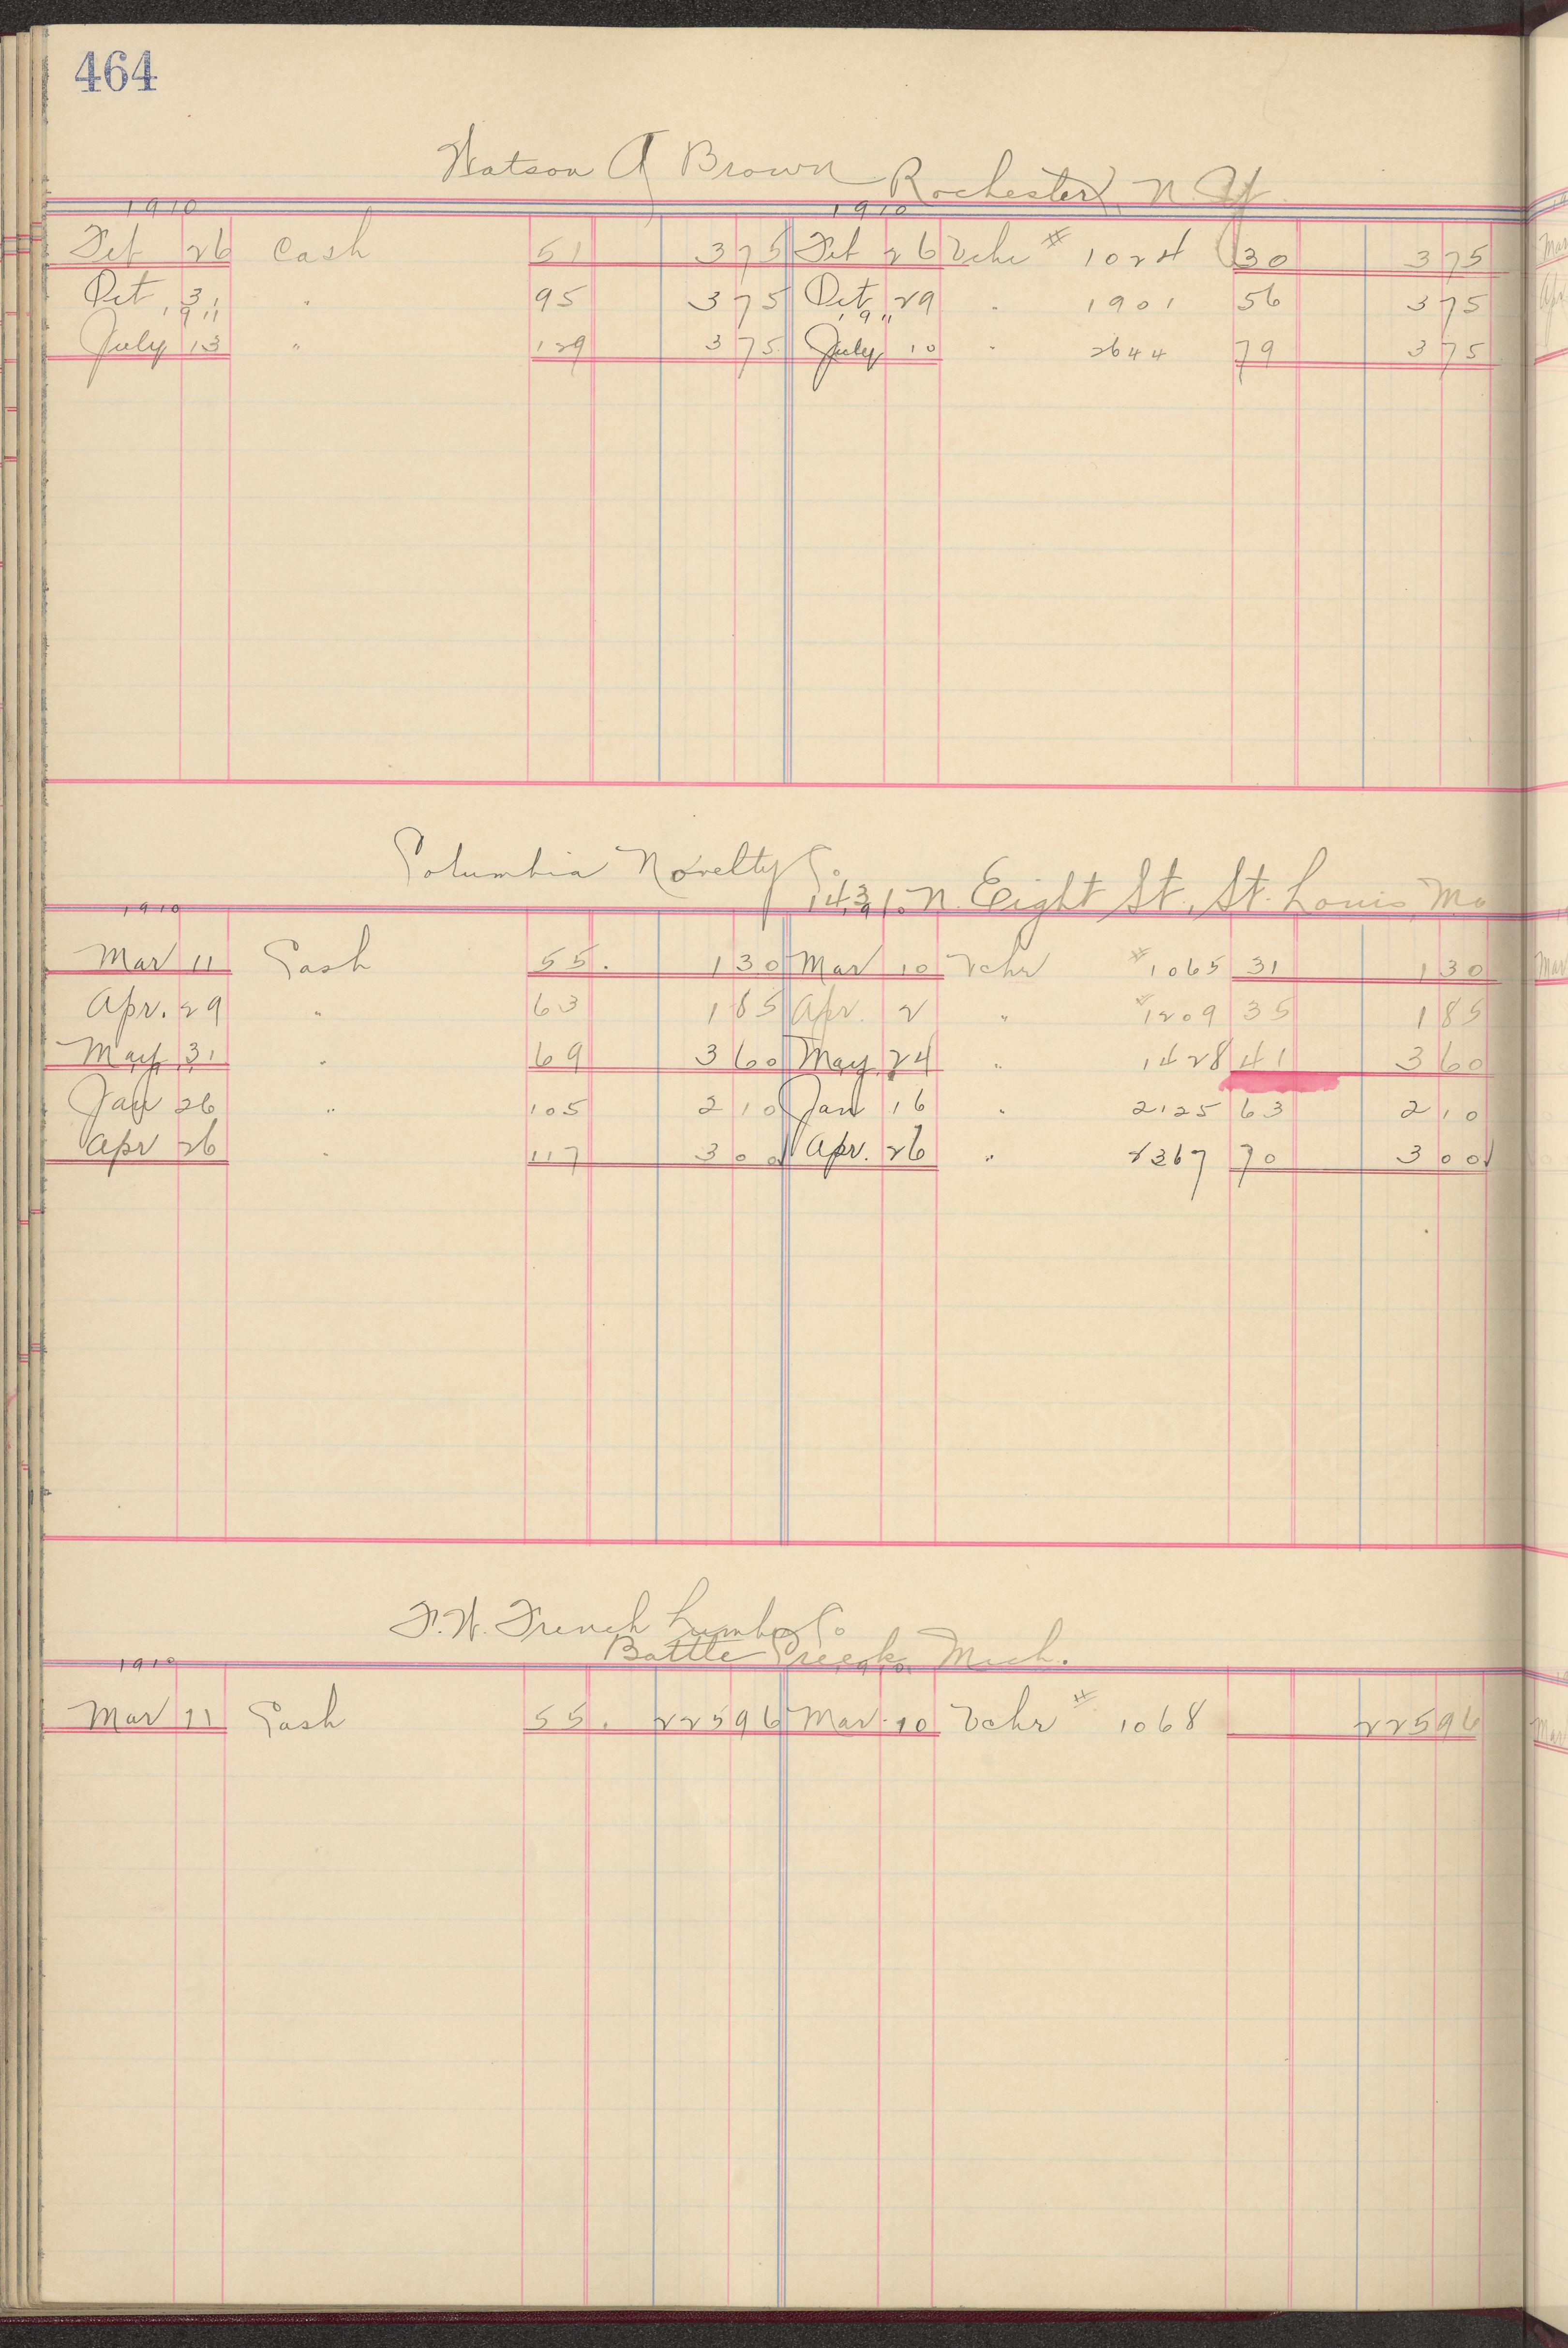 464
Watson A Brown
Rochester, N. Y.
1910 1910
Feb 26 Cash 51 3 75 Feb 26 Vchr # 1024 30 3 75
Oct 31 " 95 3 75 Oct 29 " 1901 56 3 75
1911 1911
July 13 " 129 3 75 July 10 " 2644 79 3 75
Columbia Novelty Co.
1431 N. Eight St., St. Louis, Mo
1910 1910
Mar 11 Cash 55. 1 30 Mar 10 Vchr #1065 31 1 30
Apr. 29 " 63 1 85 Apr. 2 " #1209 35 1 85
May 31 " 69 3 60 May 24 " 1428 41 3 60
Jan 26 " 105 2 10 Jan 16 " 2125 63 2 10
Apr 26 " 117 3 00 Apr. 26 " 2367 70 3 00
F. W. French Lumber Co
Battle Creek, Mich.
1910 1910
Mar 11 Cash 55. 225 96 Mar. 10 Vchr # 1068 225 96